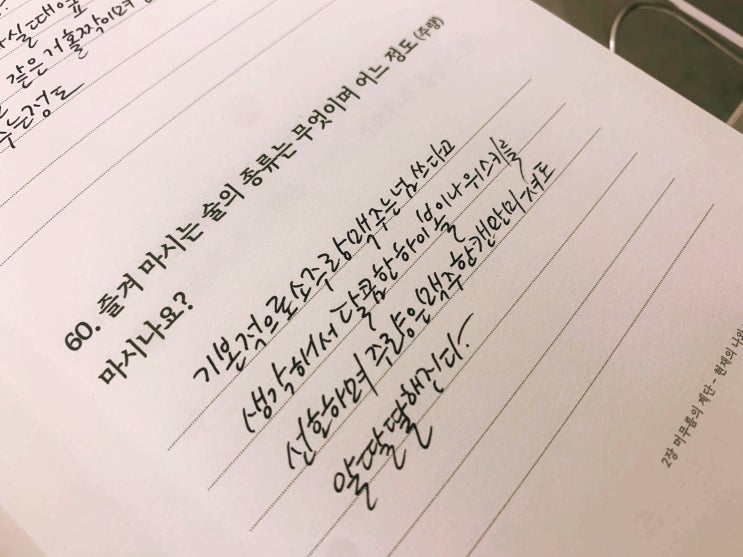 실 때 alone
같은 거 홀짝이며
는 정도
60. 즐겨 마시는 술의 종류는 무엇이며 어느 정도(주량)
마시나요?
기본적으로 소주랑 맥주는 넘 쓰다고
생각해서 달콤한 하이볼이나 위스키를
선호하며 주량은 맥주 한캔만 마셔도
알딸딸해진다.
2장 머무름의 제단 - 현재의 나와